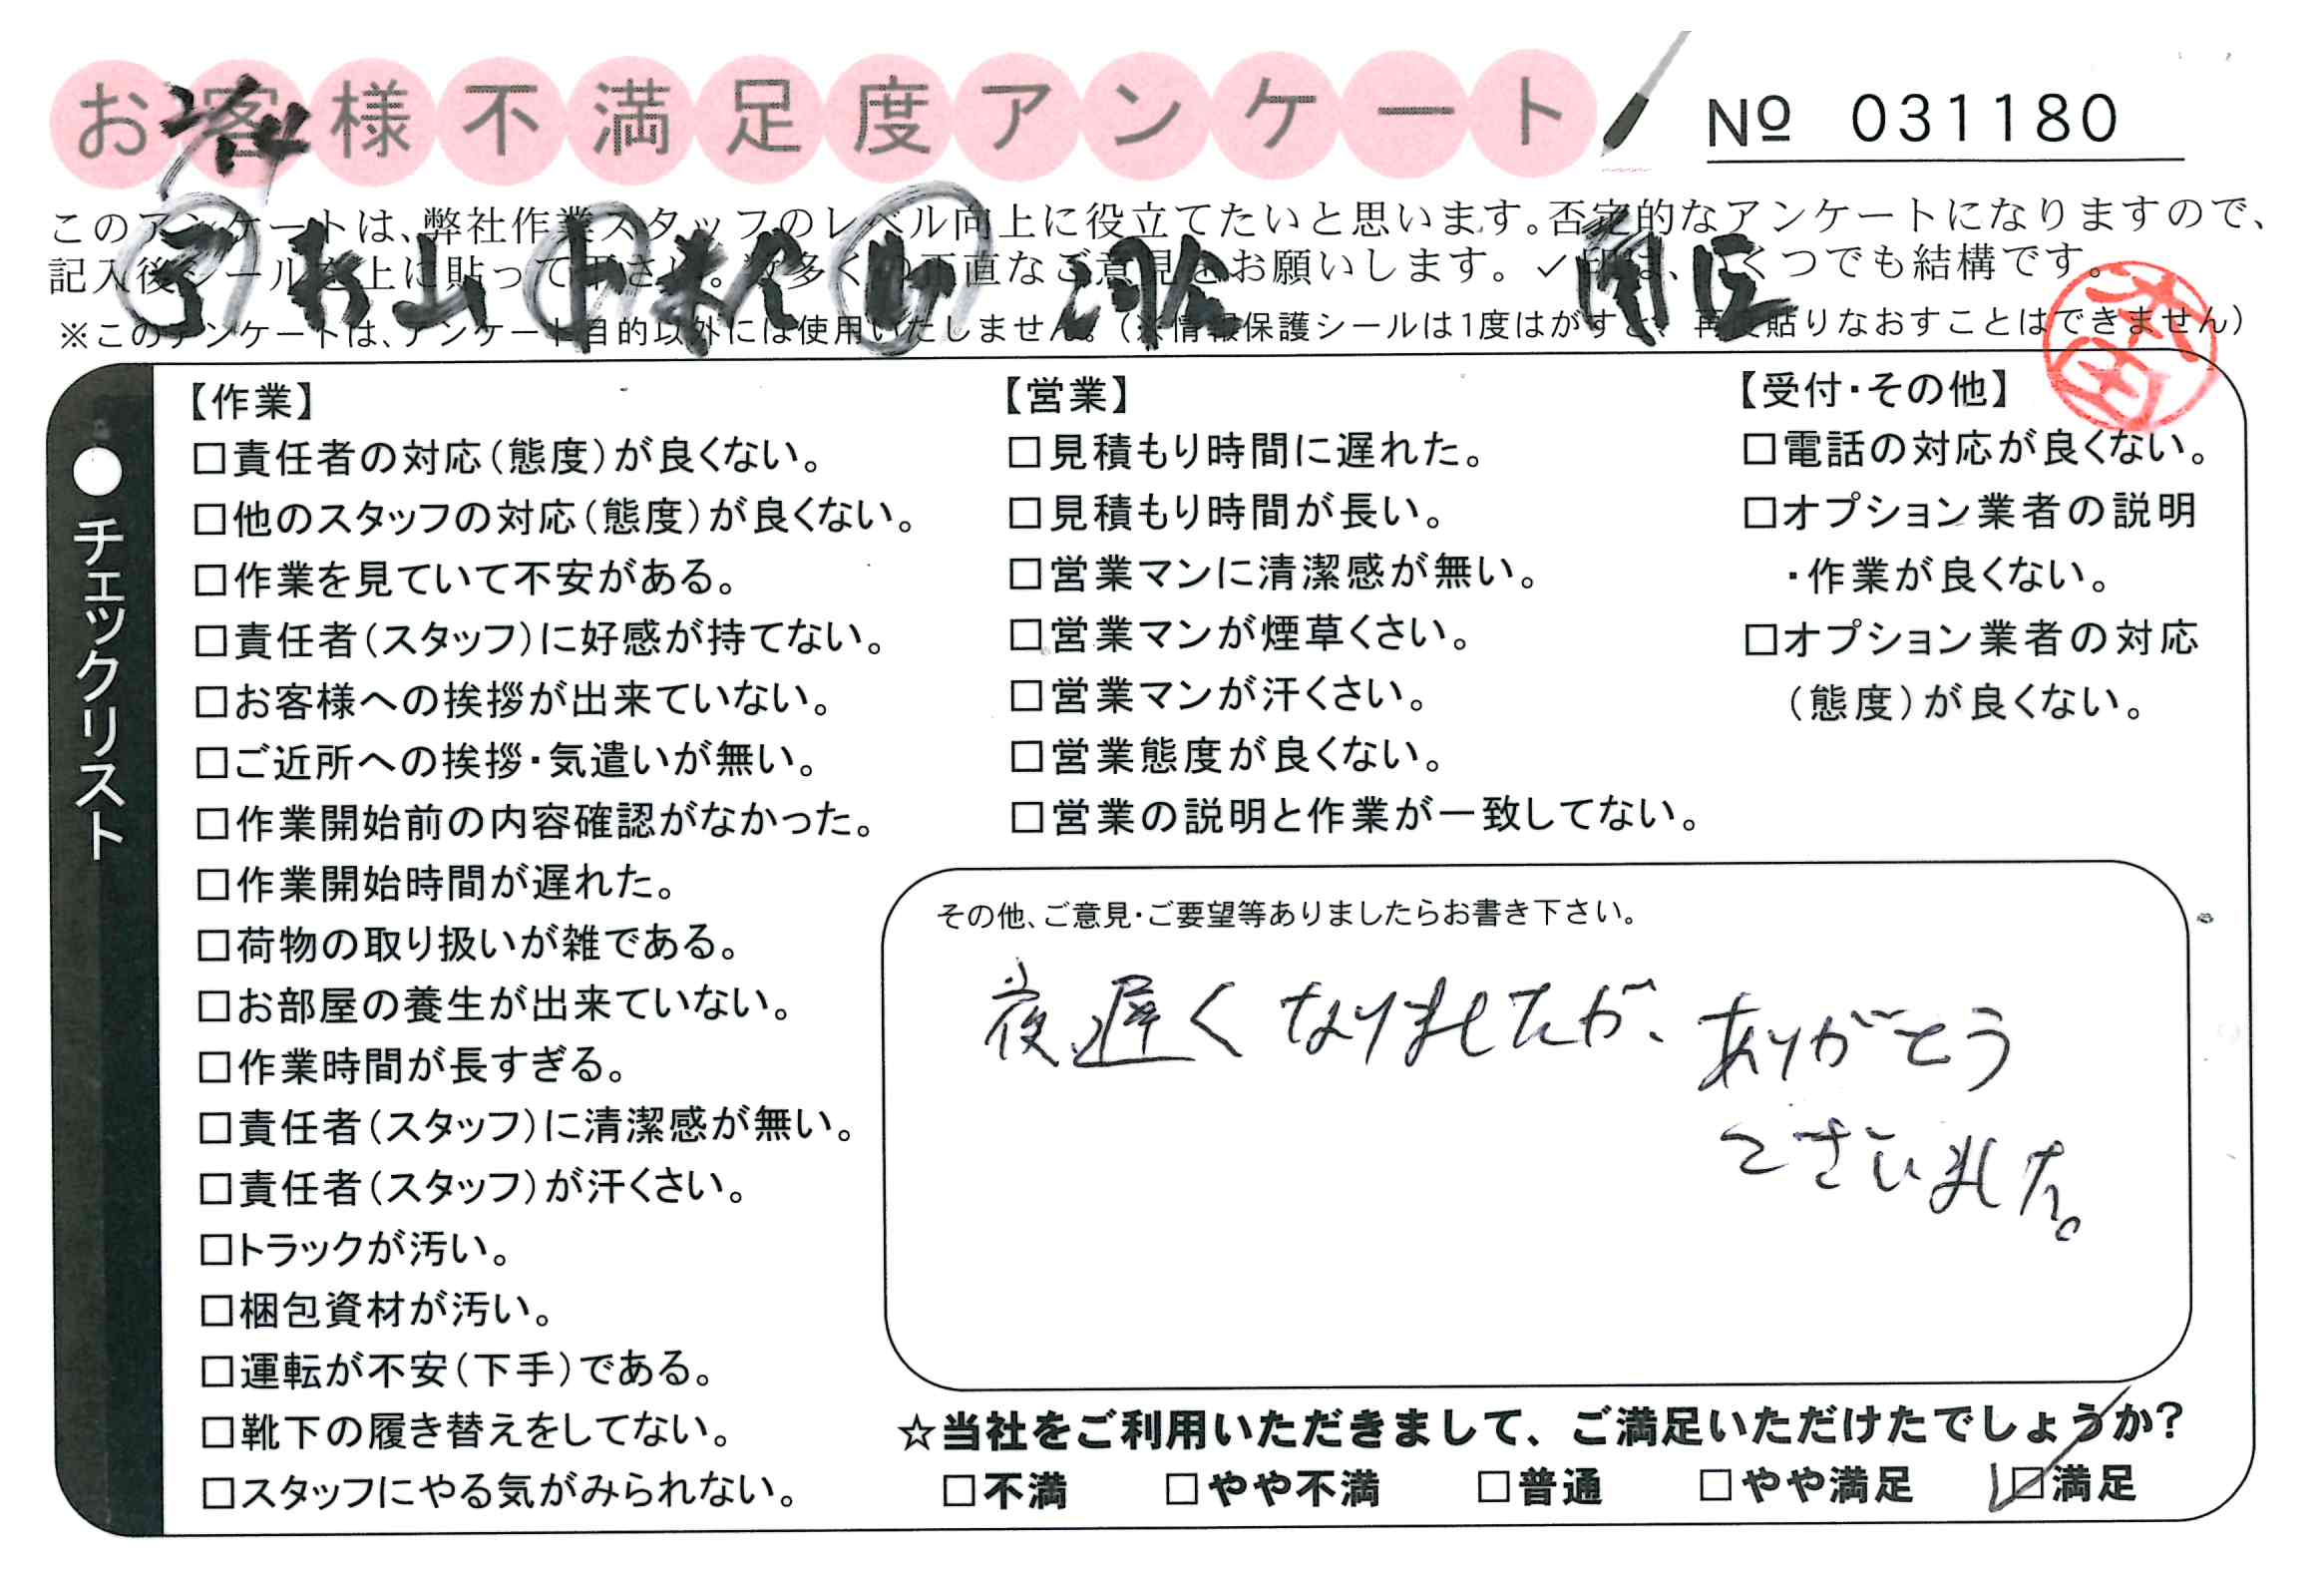 お客様不満足度アンケート
№ 031180
このアンケートは、弊社作業スタッフのレベル向上に役立てたいと思います。否定的なアンケートになりますので、
記入後シールを上に貼って下さい。数多くの正直なご意見をお願いします。✓印は、いくつでも結構です。
※このアンケートは、アンケート目的以外には使用いたしません。(※情報保護シールは1度はがすと、再度貼りなおすことはできません)
杉山
●チェックリスト
【作業】
□責任者の対応(態度)が良くない。
□他のスタッフの対応(態度)が良くない。
□作業を見ていて不安がある。
□責任者(スタッフ)に好感が持てない。
□お客様への挨拶が出来ていない。
□ご近所への挨拶・気遣いが無い。
□作業開始前の内容確認がなかった。
□作業開始時間が遅れた。
□荷物の取り扱いが雑である。
□お部屋の養生が出来ていない。
□作業時間が長すぎる。
□責任者(スタッフ)に清潔感が無い。
□責任者(スタッフ)が汗くさい。
□トラックが汚い。
□梱包資材が汚い。
□運転が不安(下手)である。
□靴下の履き替えをしてない。
□スタッフにやる気がみられない。
【営業】
□見積もり時間に遅れた。
□見積もり時間が長い。
□営業マンに清潔感が無い。
□営業マンが煙草くさい。
□営業マンが汗くさい。
□営業態度が良くない。
□営業の説明と作業が一致してない。
【受付・その他】
□電話の対応が良くない。
□オプション業者の説明
・作業が良くない。
□オプション業者の対応
(態度)が良くない。
その他、ご意見・ご要望等ありましたらお書き下さい。
夜遅くなりましたが、ありがとう
ございました。
☆当社をご利用いただきまして、ご満足いただけたでしょうか?
□不満 □やや不満 □普通 □やや満足 ☑満足